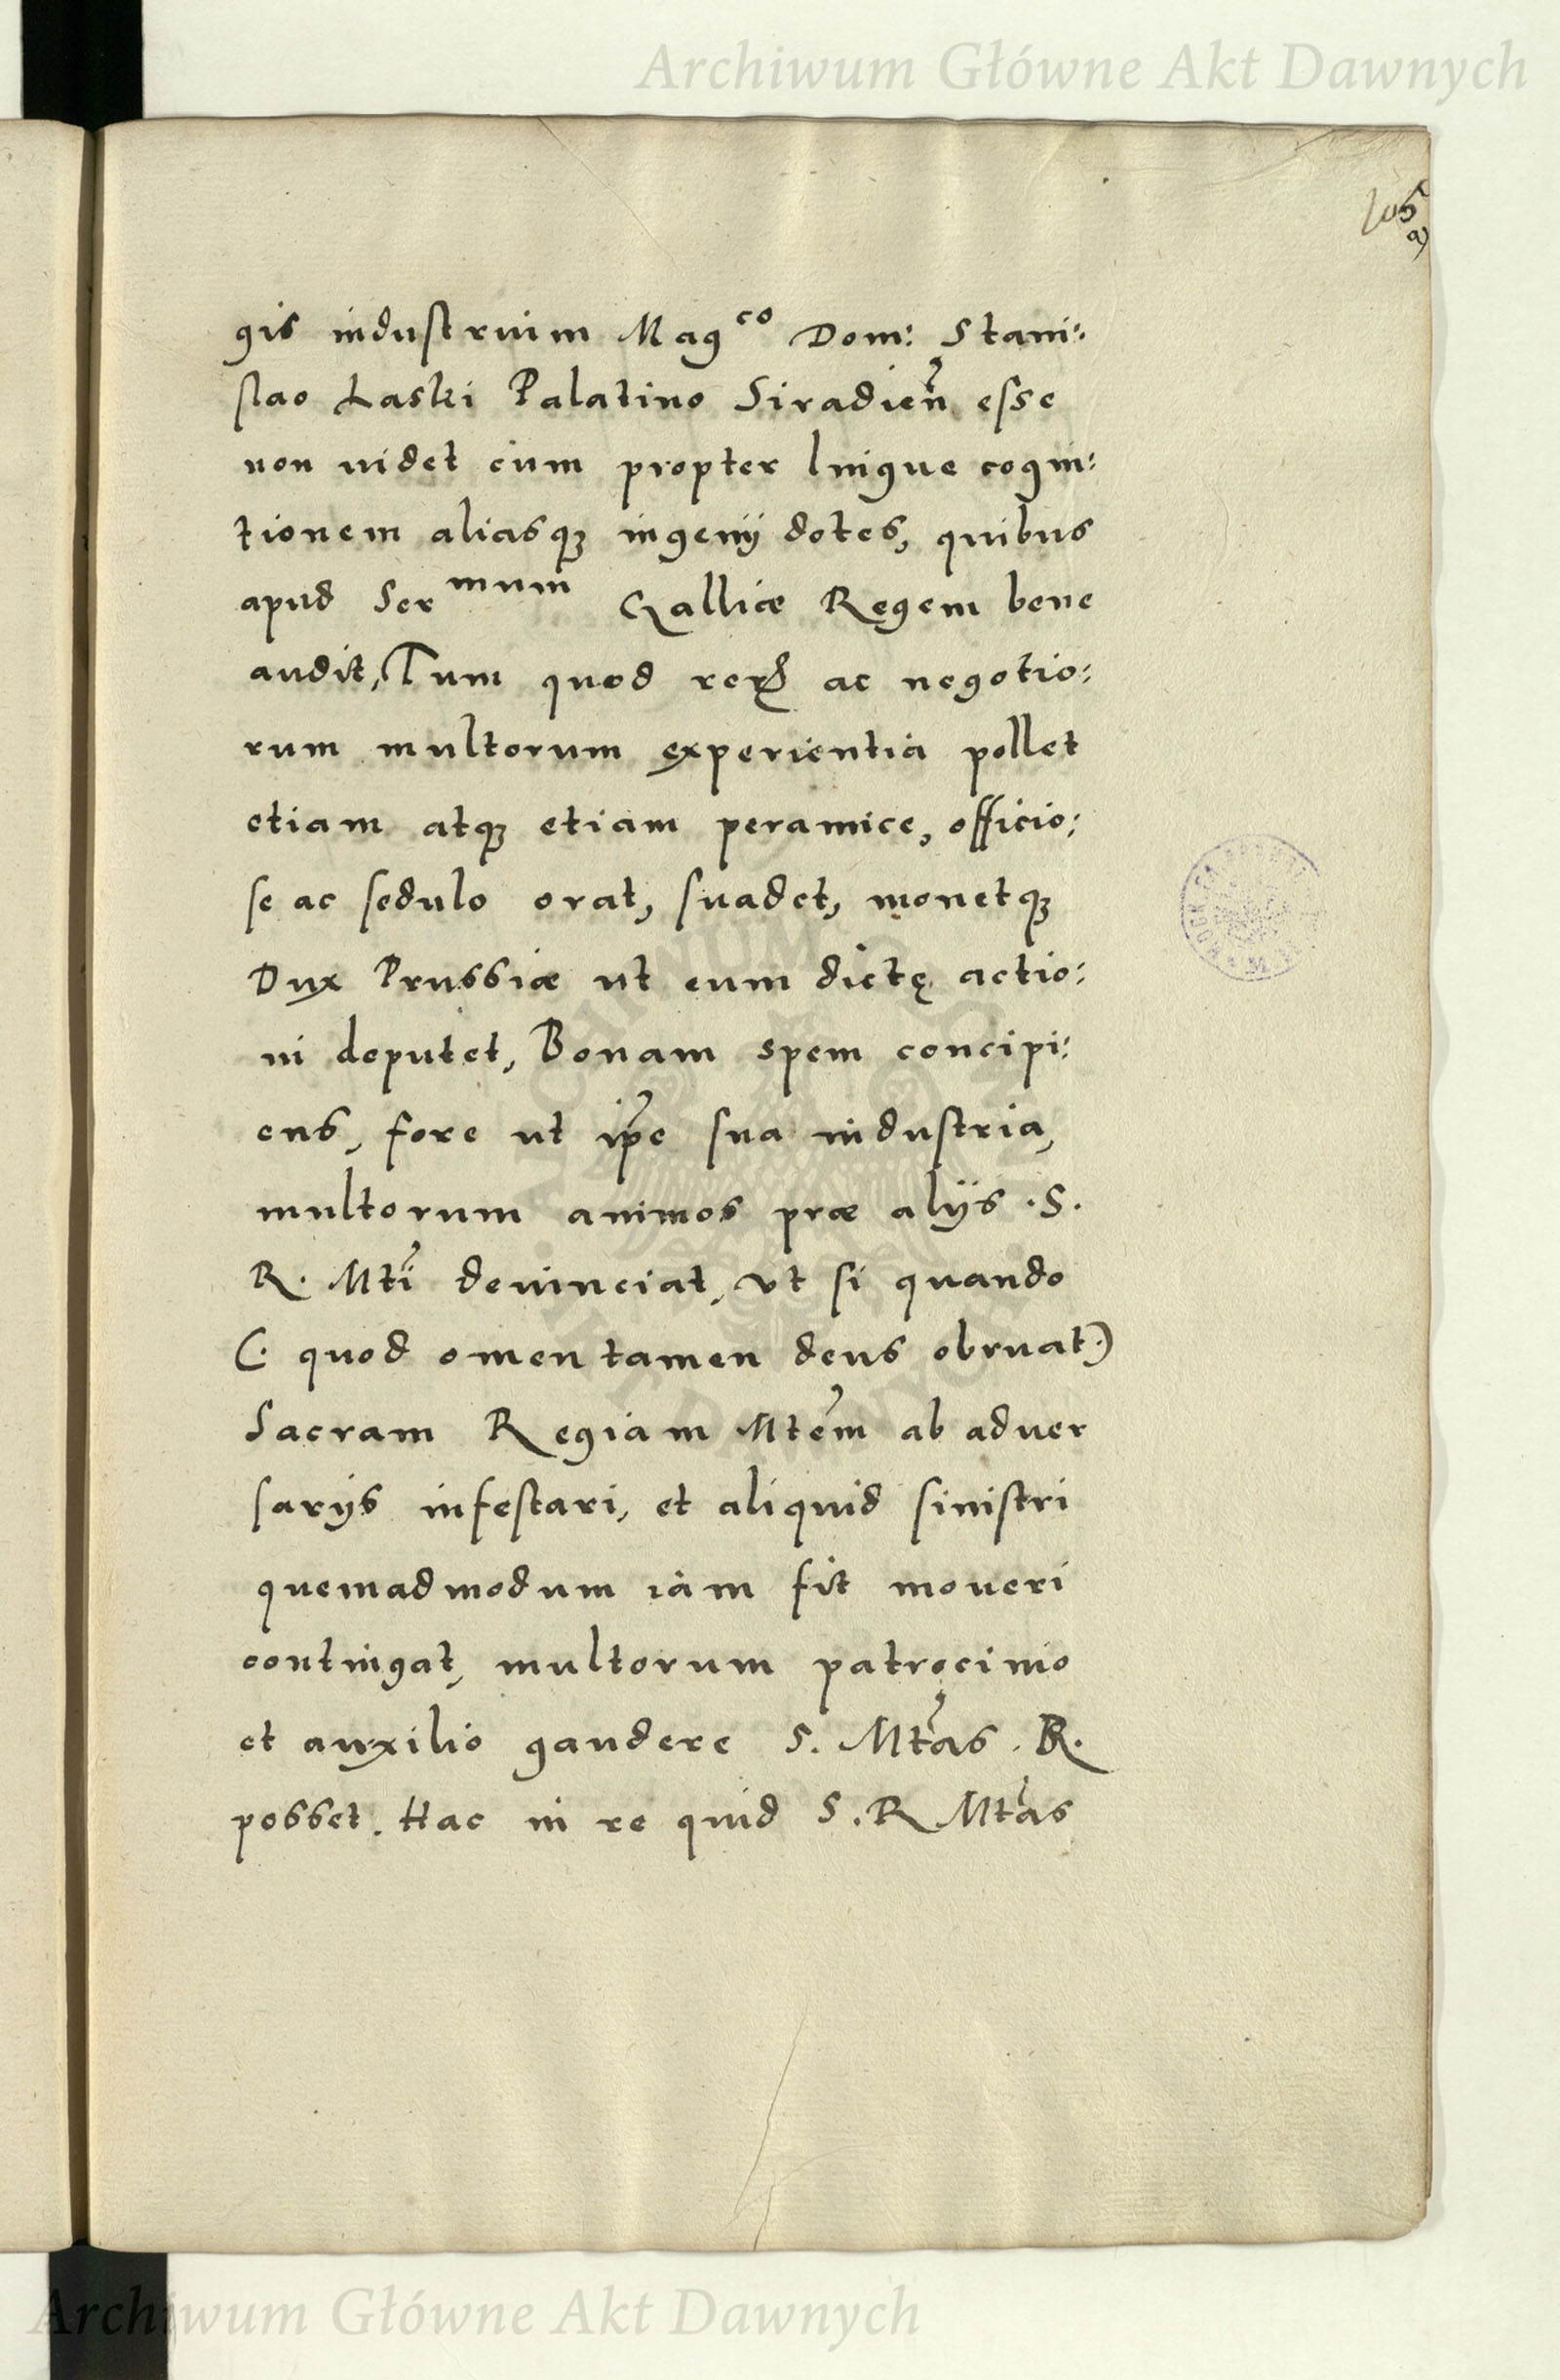 Archiwum Główne Akt Dawnych
105
a)
gis industrium Mag^co Dom: Stani:
slao Laski Palatino Siradien̄ esse
non uidet cum propter linguę cogni:
tionem aliasq; ingenij dotes, quibus
apud Ser^mum Galliæ Regem bene
audit, Tum quod rerꝝ ac negotio:
rum multorum experientia pollet
etiam atq; etiam peramice, officio:
se ac sedulo orat, suadet, monetq;
Dux Prussiæ ut eum dictę actio:
ni deputet, Bonam spem concipi:
ens, fore ut ip̄e sua industria,
multorum animos præ alijs .S.
R. Mti deuinciat, vt si quando
(. quod omen tamen deus obruat.)
Sacram Regiam Mtem ab aduer
sarijs infestari, et aliquid sinistri
quemadmodum iam fit moueri
contingat, multorum patrocinio
et auxilio gaudere S. Mtas. R.
posset. Hac in re quid S. R Mtas
Archiwum Główne Akt Dawnych